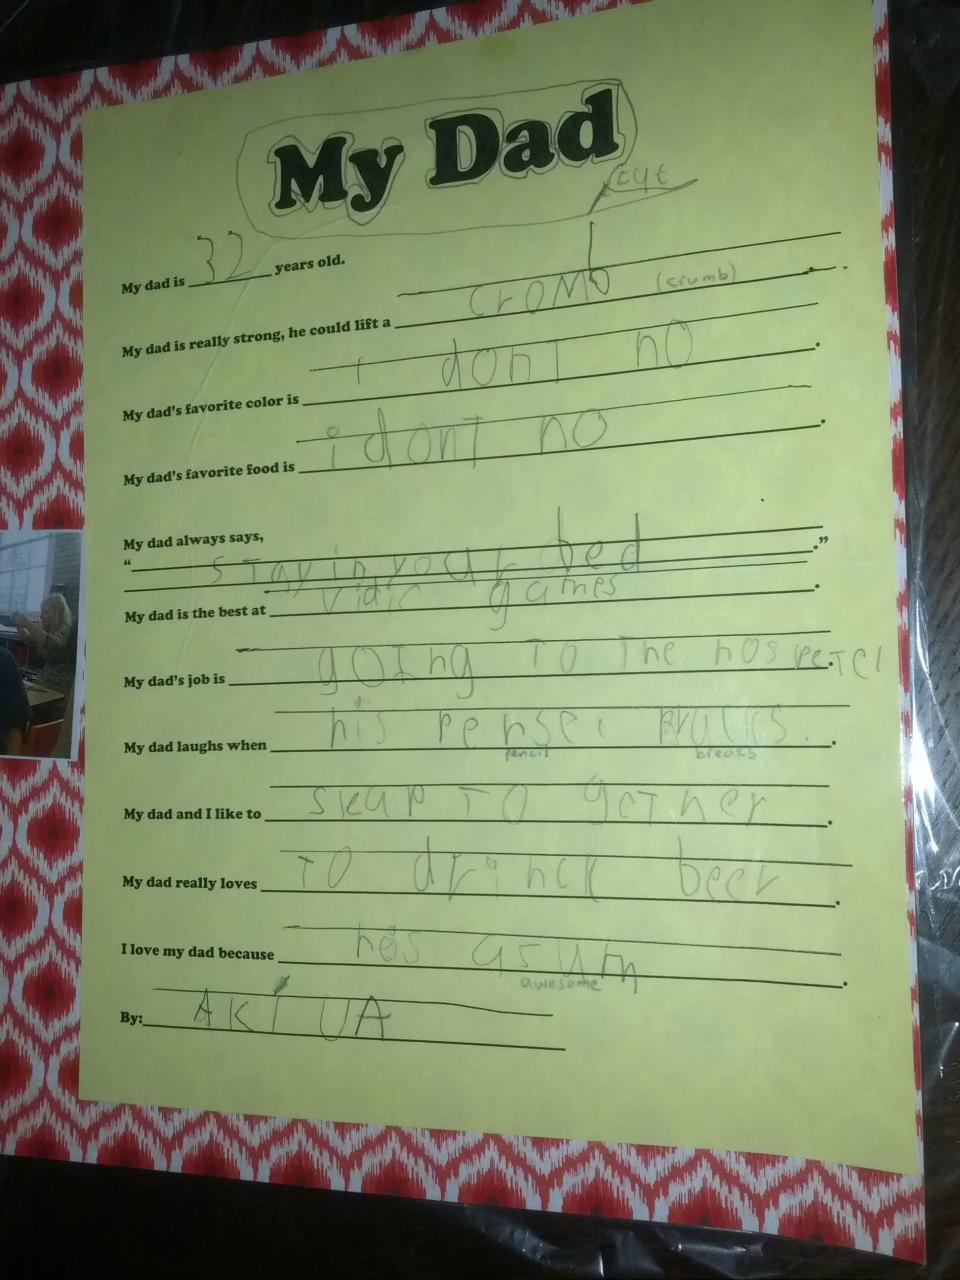 My Dad
cut
My dad is 32 years old.
My dad is really strong, he could lift a cromb (crumb).
My dad's favorite color is i dont no.
My dad's favorite food is i dont no.
My dad always says,
"stay in your bed."
My dad is the best at vidic games.
My dad's job is going to the hospetel.
My dad laughs when his pensel braks.
pencil breaks
My dad and I like to skap to gether.
My dad really loves to drinck beer.
I love my dad because hes asum.
awesome
By: AKIUA